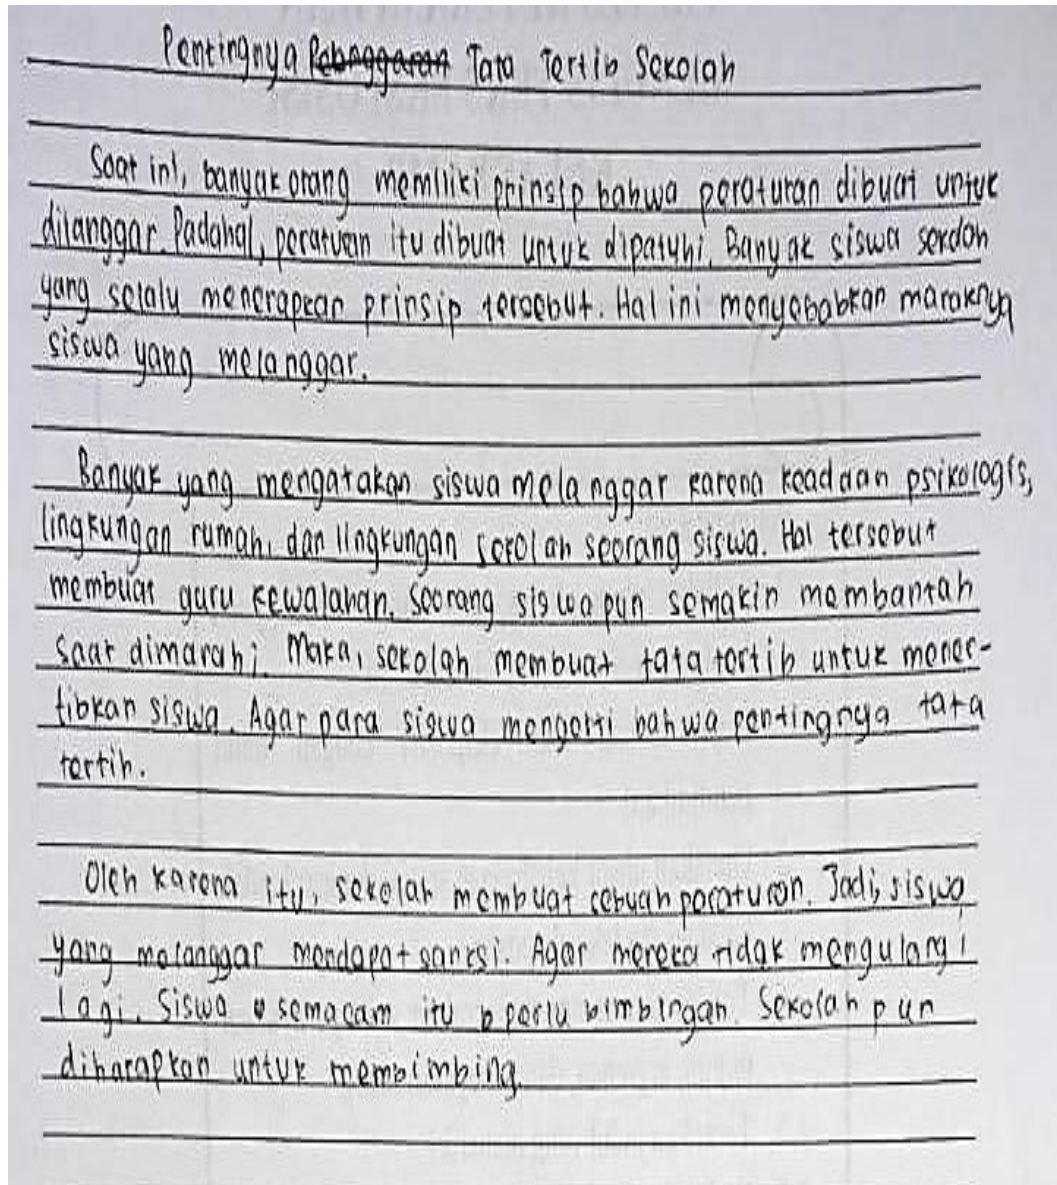 Pentingnya Tata Tertib Sekolah
Saat ini, banyak orang memiliki prinsip bahwa peraturan dibuat untuk
dilanggar. Padahal, peratuan itu dibuat untuk dipatuhi. Banyak siswa
yang selalu menerapkan prinsip tersebut. Hal ini menyebabkan maraknya
siswa yang melanggar.
Banyak yang mengatakan siswa melanggar karena keadaan psikologis,
lingkungan rumah, dan lingkungan sekolah seorang siswa. Hal tersebut
membuat guru kewalahan. Seorang siswa pun semakin membantah
saat dimarahi. Maka, sekolah membuat tata tertib untuk mener-
tibkan siswa. Agar para siswa mengerti bahwa pentingnya tata
tertib.
Oleh karena itu, sekolah membuat sebuah peraturan. Jadi, siswa
yang melanggar mendapat sanksi. Agar mereka tidak mengulangi
lagi. Siswa semacam itu perlu bimbingan. Sekolah pun
diharapkan untuk membimbing.